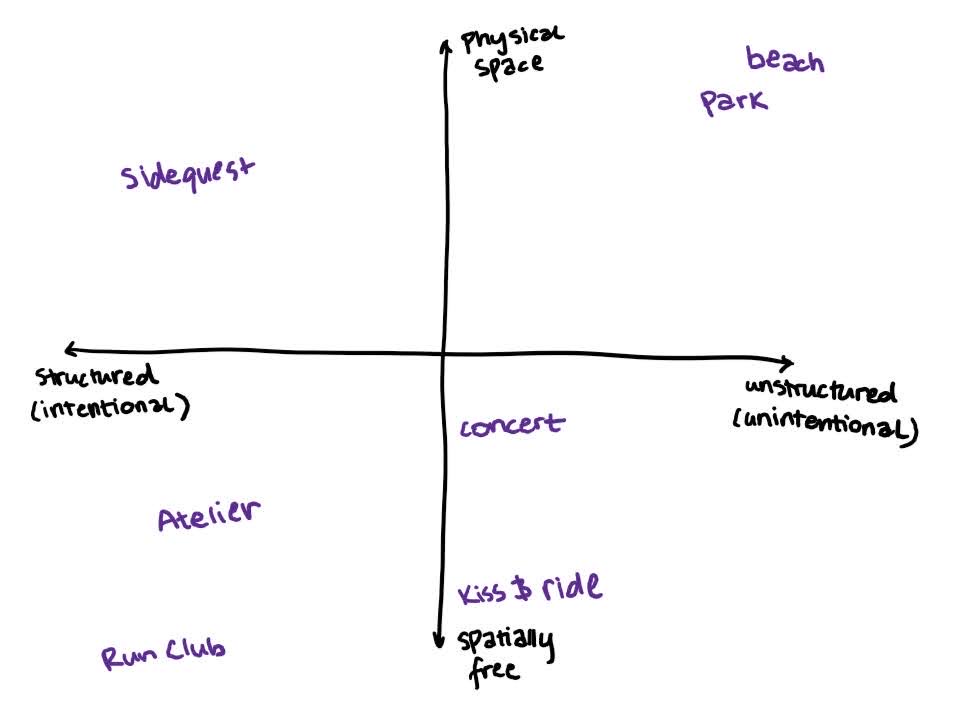 Physical
space
beach
Park
Sidequest
structured
(intentional)
unstructured
(unintentional)
concert
Atelier
Kiss & ride
Run Club
spatially
free